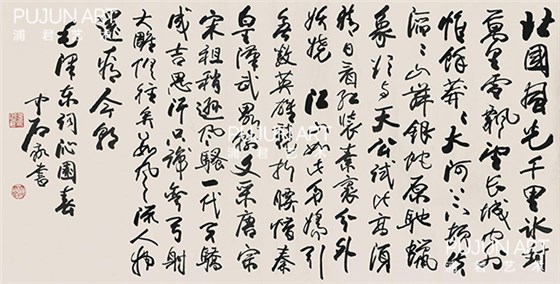 北國風光千里冰封
萬里雪飄望長城内外
惟餘莽々大河上下頓失
滔々山舞銀蛇原馳蠟
象欲与天公試比高須
晴日看紅装素裹分外
妖嬈江山如此多嬌引
無數英雄競折腰惜秦
皇漢武略輸文采唐宗
宋祖稍遜風騷一代天驕
成吉思汗只識彎弓射
大雕俱往矣數風流人物
還看今朝
毛澤东詞沁園春
中石敬書
PUJUN ART
浦君艺术
PUJUN ART
浦君艺术
PUJUN ART
浦君艺术
PUJUN ART
PUJUN ART